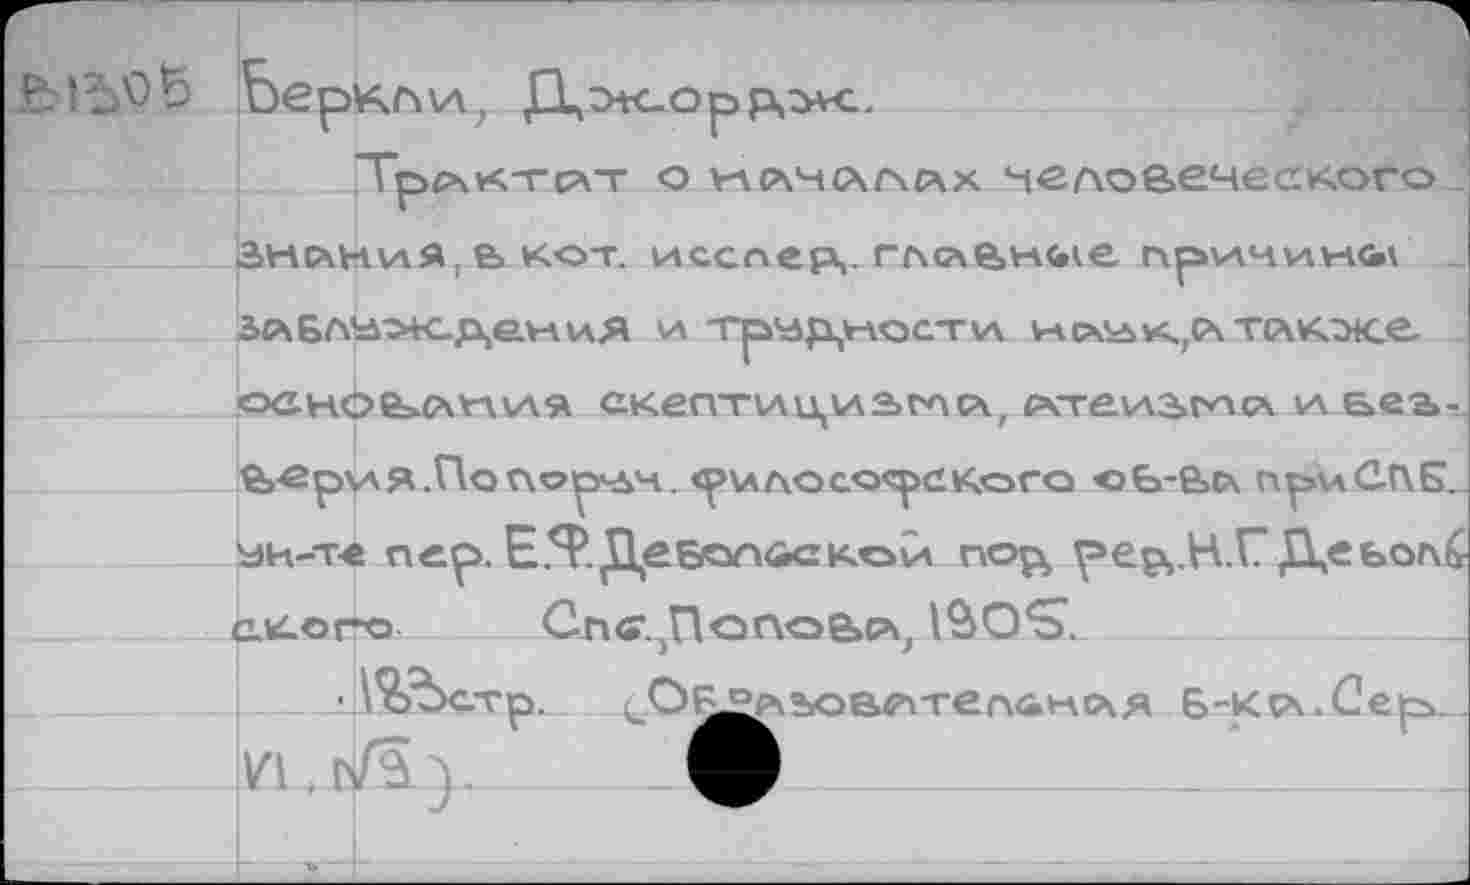 Беркли, Джордж.
Трактат о началах человеческого
знания, в кот. исслед. главные причины
заблуждения и трудности наук, а также
основания скептицизма, атеизма и без-
верия. По поруч. философского об-ва при СПБ.
ун-те пер. Е.Ф. Дебольской под ред. Н.Г. Деболь
ского Спб., Попова, 1905.
183 стр. (Образовательная б-ка. Сер.
VI, №3).